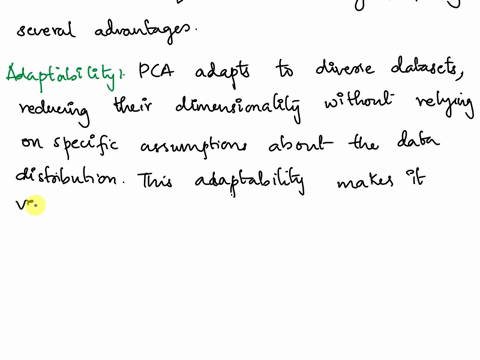 several advantages.
Adaptability: PCA adapts to diverse datasets,
reducing their dimensionality without relying
on specific assumptions about the data
distribution. This adaptability makes it